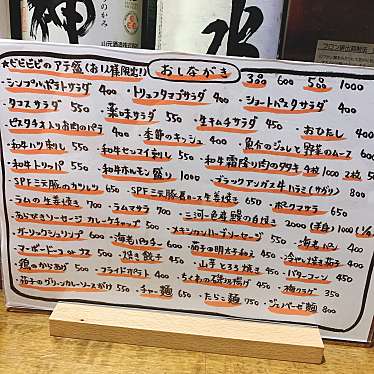 ★ビビビのアテ盛(お1人様限定!) おしながき 3点盛 600 5点盛 1000
・シンプルポテトサラダ 400 ・トリュフタマゴサラダ 400 ・ショートパスタサラダ 400
・タコスサラダ 550 ・薬味サラダ 550 ・生キムチサラダ 550 ・おひたし 400
・ピスタチオ入りお肉のパテ 400 ・季節のキッシュ 400 ・魚介のジュレと野菜のムース 600
・和牛ハツ刺し 550 ・和牛センマイ刺し 550 ・和牛霜降り肉のタタキ 4枚 400 2枚
・和牛トリッパ 550 ・和牛ホルモン盛り 1000 ・ブラックアンガス牛ハラミ(サガリ) 800
・SPF三元豚のカツレツ 650 ・SPF三元豚肩ロース生姜焼き 650 ・ポークマサラ 650
・ラムの生姜焼き 700 ・ラムマサラ 700 ・三河一色産鰻の白焼き 2000 (半身) 1000
・あらびきソーセージ カレーケチャップ 500 ・メキシカンハーブソーセージ 550
・ガーリックシュリンプ 600 ・海老パクチー 600 ・茄子の明太子和え 450 ・海老パン 450
・マーボードーフ or ナス 550 ・焼き餃子 450 ・山芋とろろ焼き 450 ・冷やし焼茄子 400
・鶏のからあげ 550 ・フライドポテト 400 ・ちくわの磯辺揚げ 450 ・バターコーン 450
・茄子のグリーンカレーソースがけ 550 ・チャー麺 650 ・たらこ麺 750 ・ジェノベーゼ麺 800